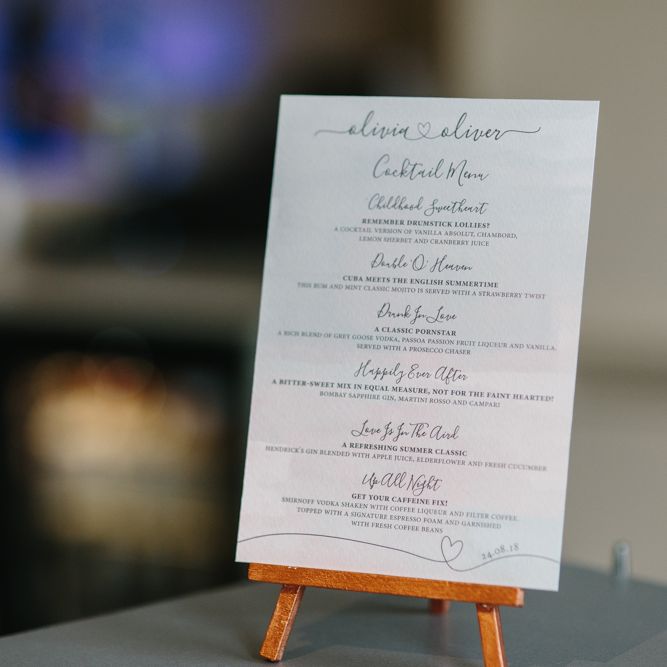 olivia oliver
Cocktail Menu
Childhood Sweetheart
REMEMBER DRUMSTICK LOLLIES?
A COCKTAIL VERSION OF VANILLA ABSOLUT, CHAMBORD,
LEMON SHERBET AND CRANBERRY JUICE
Double 'O' Heaven
CUBA MEETS THE ENGLISH SUMMERTIME
THIS RUM AND MINT CLASSIC MOJITO IS SERVED WITH A STRAWBERRY TWIST
Drunk In Love
A CLASSIC PORNSTAR
A RICH BLEND OF GREY GOOSE VODKA, PASSOA PASSION FRUIT LIQUEUR AND VANILLA.
SERVED WITH A PROSECCO CHASER
Happily Ever After
A BITTER-SWEET MIX IN EQUAL MEASURE, NOT FOR THE FAINT HEARTED!
BOMBAY SAPPHIRE GIN, MARTINI ROSSO AND CAMPARI
Love Is In The Aird
A REFRESHING SUMMER CLASSIC
HENDRICK'S GIN BLENDED WITH APPLE JUICE, ELDERFLOWER AND FRESH CUCUMBER
Up All Night
GET YOUR CAFFEINE FIX!
SMIRNOFF VODKA SHAKEN WITH COFFEE LIQUEUR AND FILTER COFFEE.
TOPPED WITH A SIGNATURE ESPRESSO FOAM AND GARNISHED
WITH FRESH COFFEE BEANS
24.08.18